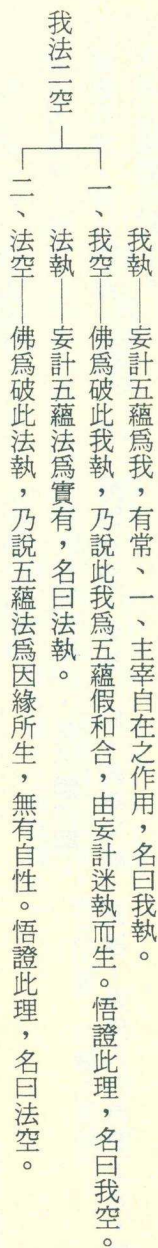 我法二空
我執——妄計五蘊為我，有常、一、主宰自在之作用，名曰我執。
一、我空——佛為破此我執，乃說此我為五蘊假和合，由妄計迷執而生。悟證此理，名曰我空。
法執——妄計五蘊法為實有，名曰法執。
二、法空——佛為破此法執，乃說五蘊法為因緣所生，無有自性。悟證此理，名曰法空。